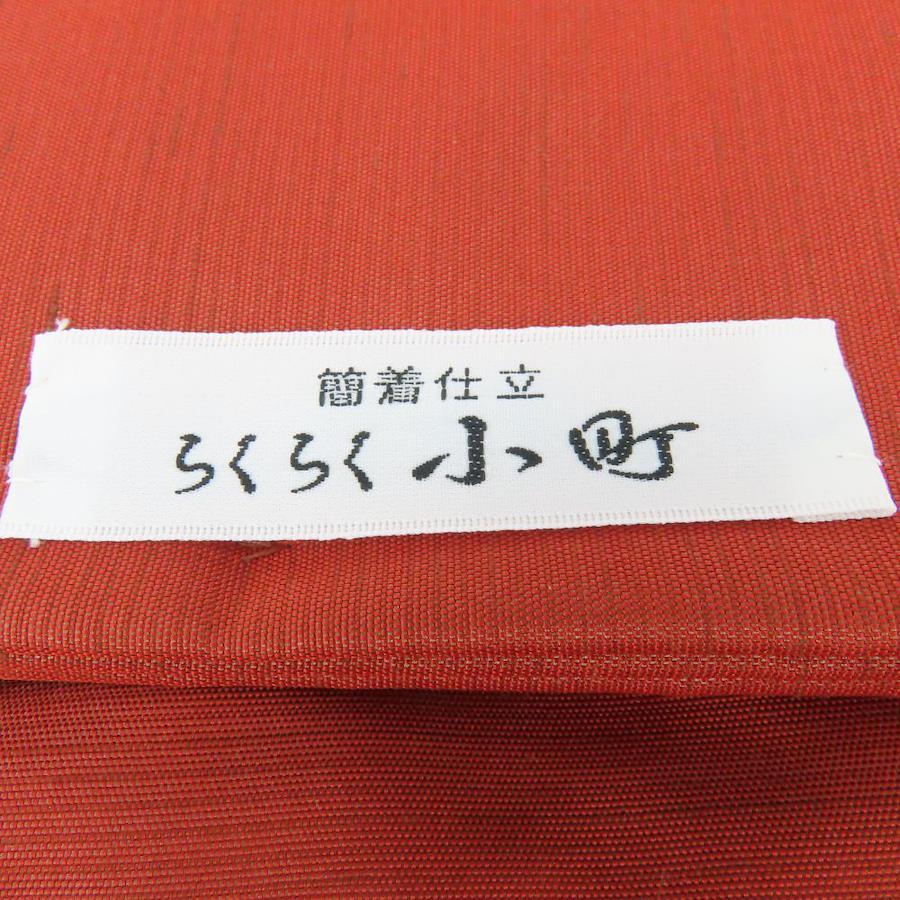 簡着仕立
らくらく小町